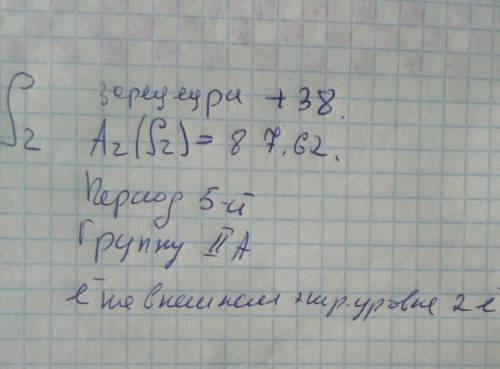 Sr
заряд ядра +38.
Ar(Sr) = 87,62.
Период 5-й
Группу IIA
ē на внешнем энер. уровне 2 ē